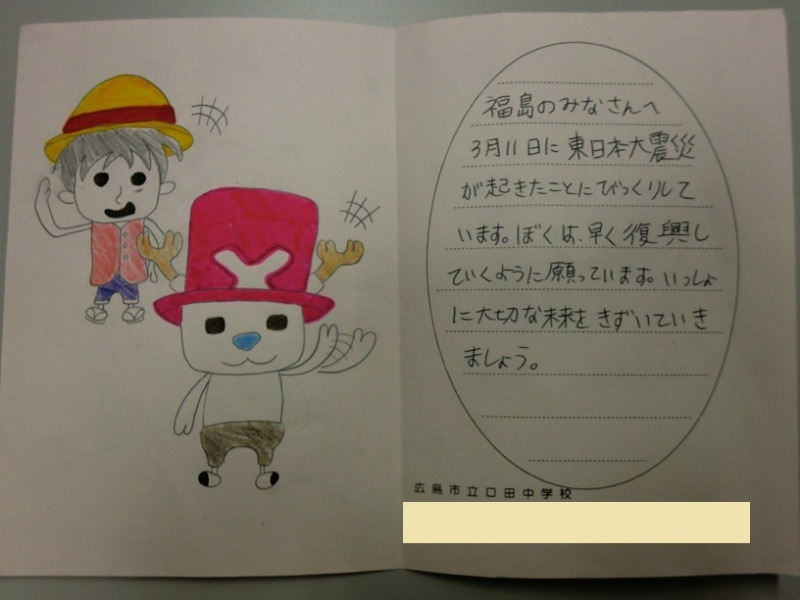 福島のみなさんへ
3月11日に東日本大震災
が起きたことにびっくりして
います。ぼくは、早く復興し
ていくように願っています。いっしょ
に大切な未来をきずいていき
ましょう。
広島市立口田中学校